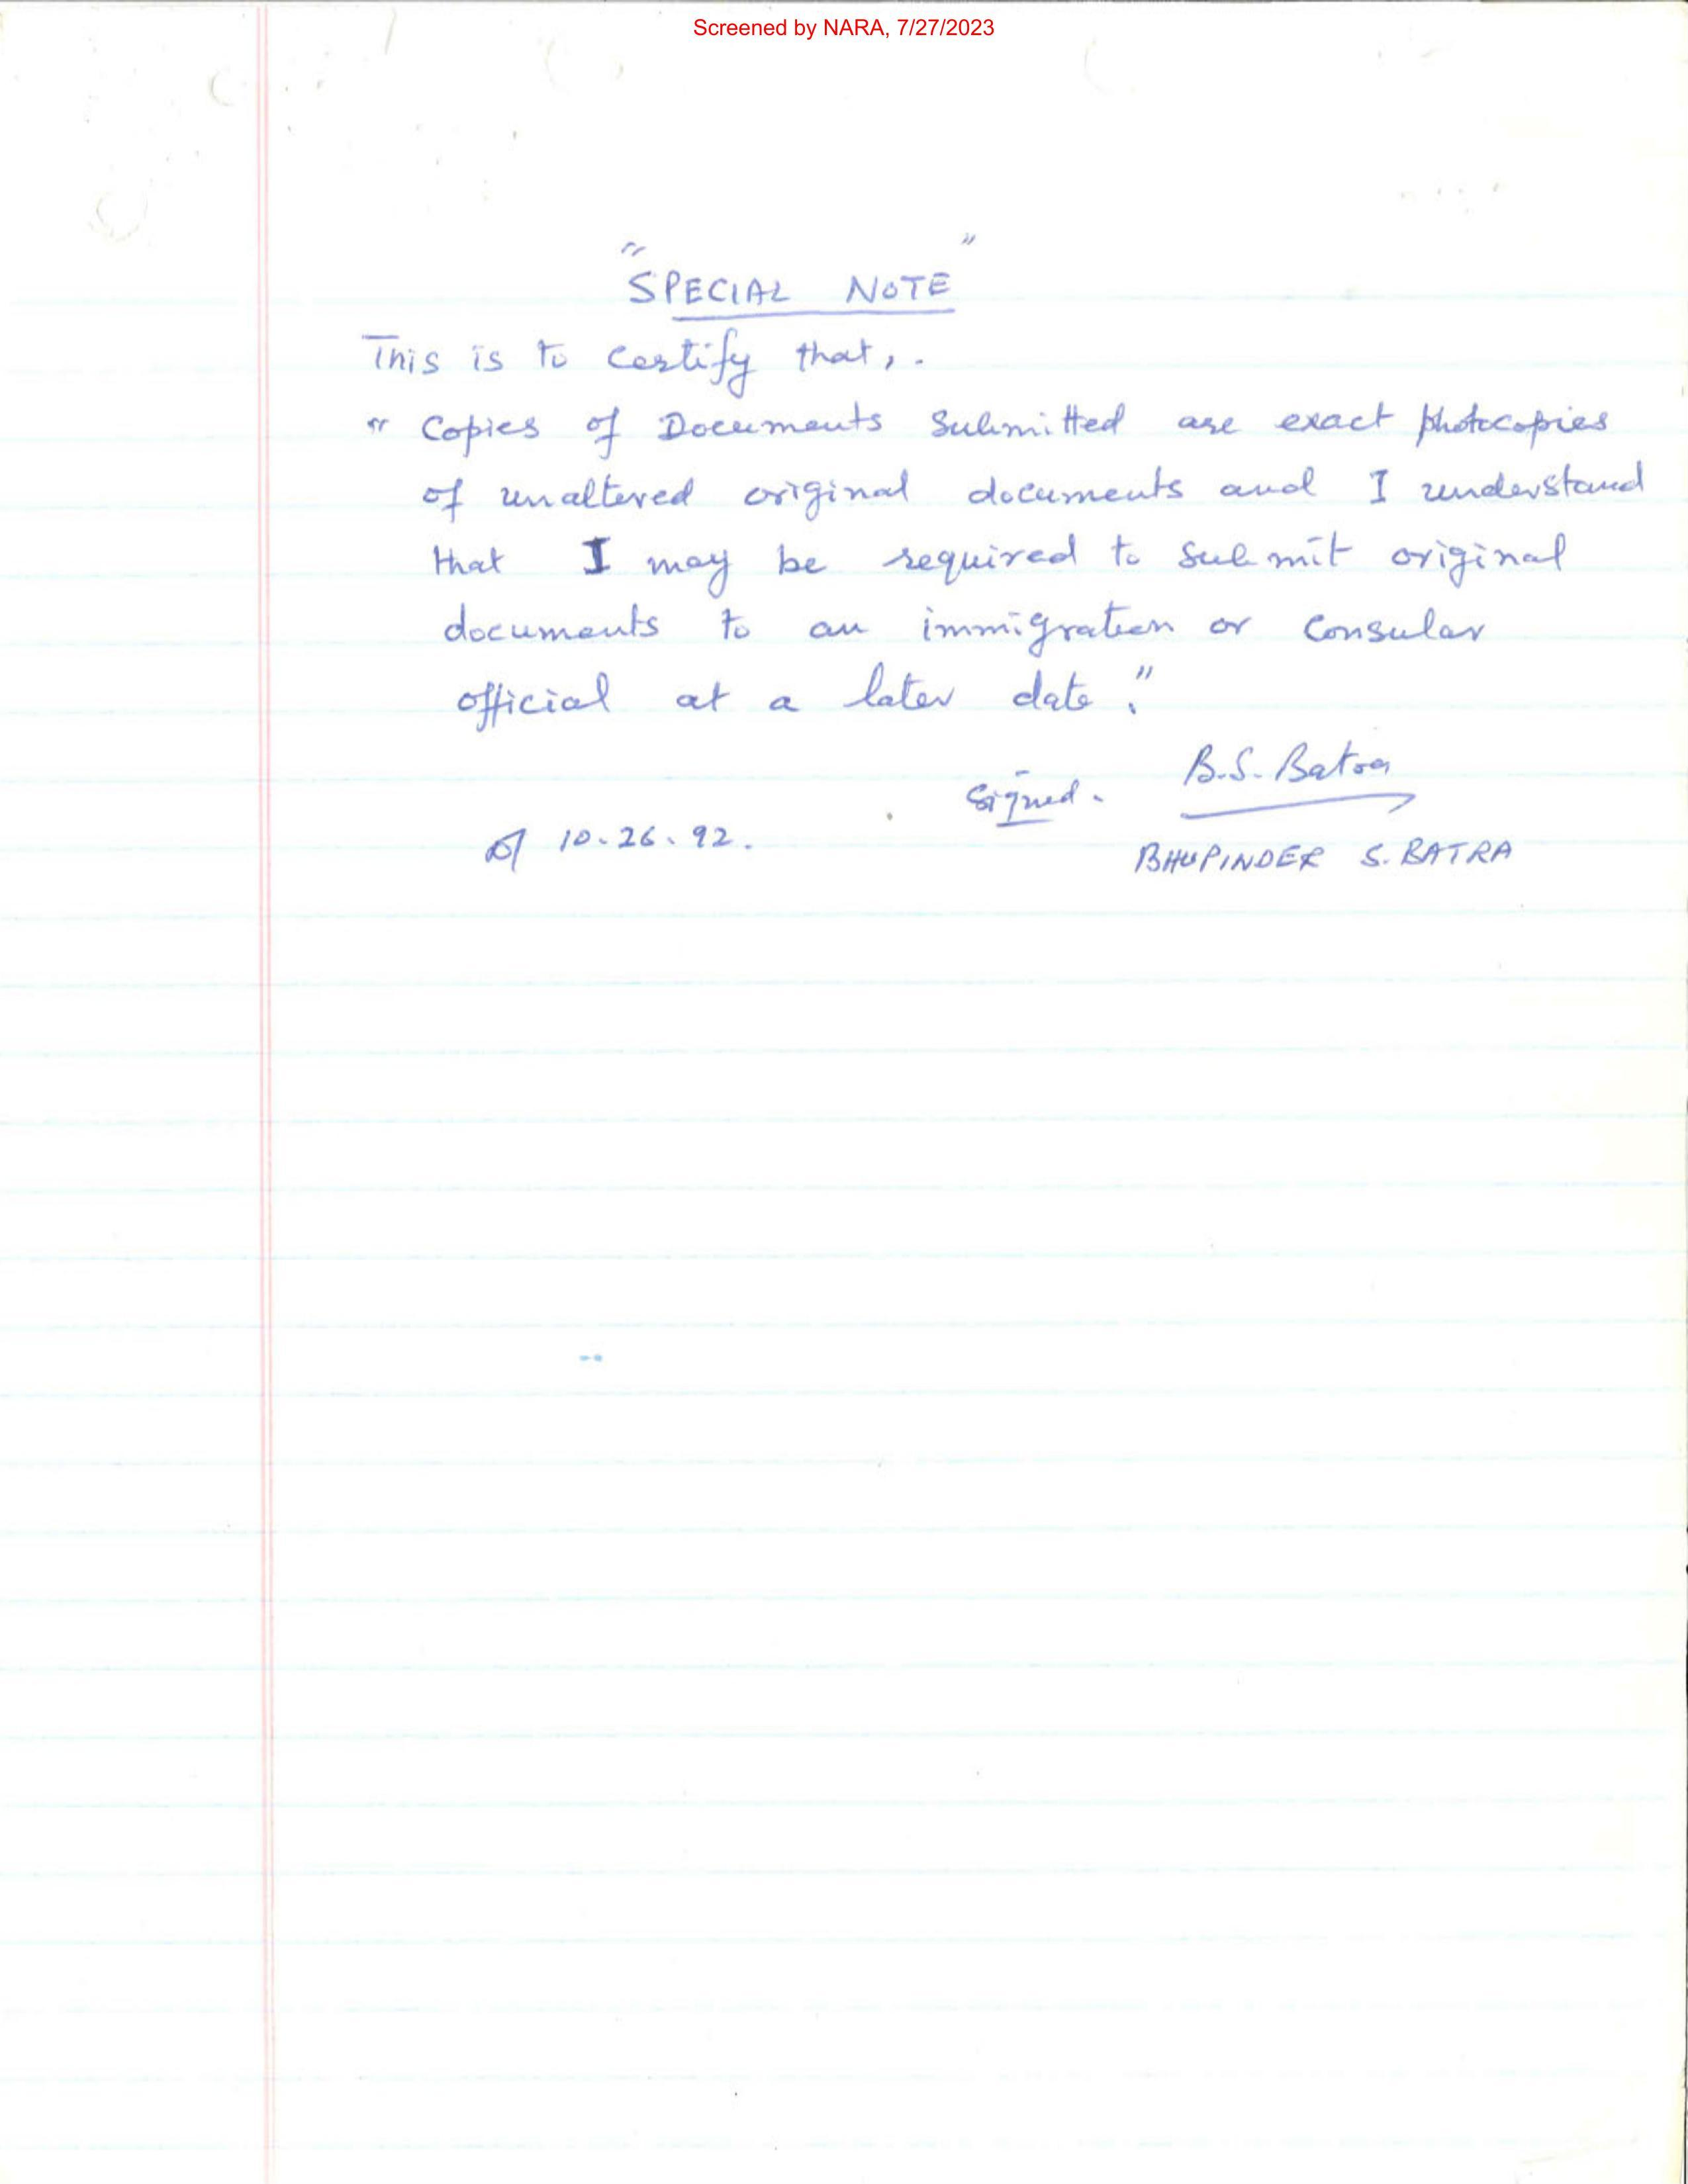 Screened by NARA, 7/27/2023
"SPECIAL NOTE"
This is to certify that,.
" Copies of Documents Submitted are exact photocopies
of unaltered original documents and I understand
that I may be required to submit original
documents to an immigration or Consular
official at a later date."
Signed. B.S. Batra
10.26.92.
BHUPINDER S. BATRA